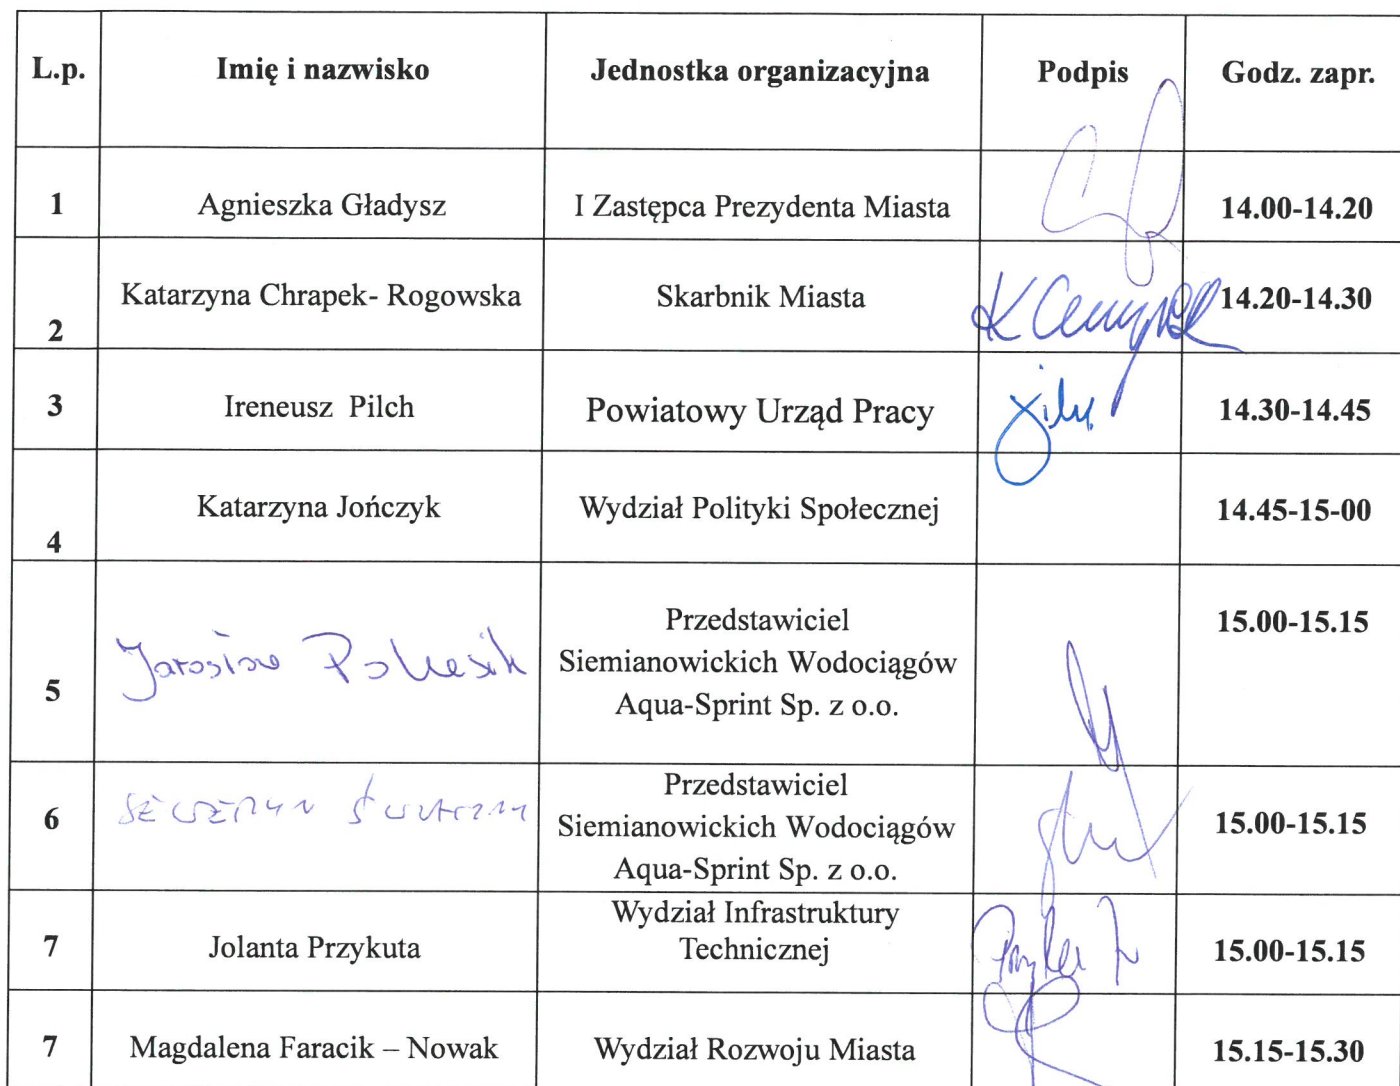 L.p. Imię i nazwisko Jednostka organizacyjna Podpis Godz. zapr.
1 Agnieszka Gładysz I Zastępca Prezydenta Miasta 14.00-14.20
2 Katarzyna Chrapek- Rogowska Skarbnik Miasta 14.20-14.30
3 Ireneusz Pilch Powiatowy Urząd Pracy 14.30-14.45
4 Katarzyna Jończyk Wydział Polityki Społecznej 14.45-15-00
5 Jarosław Przedstawiciel 15.00-15.15
Siemianowickich Wodociągów
Aqua-Sprint Sp. z o.o.
6 Przedstawiciel 15.00-15.15
Siemianowickich Wodociągów
Aqua-Sprint Sp. z o.o.
7 Jolanta Przykuta Wydział Infrastruktury 15.00-15.15
Technicznej
7 Magdalena Faracik – Nowak Wydział Rozwoju Miasta 15.15-15.30